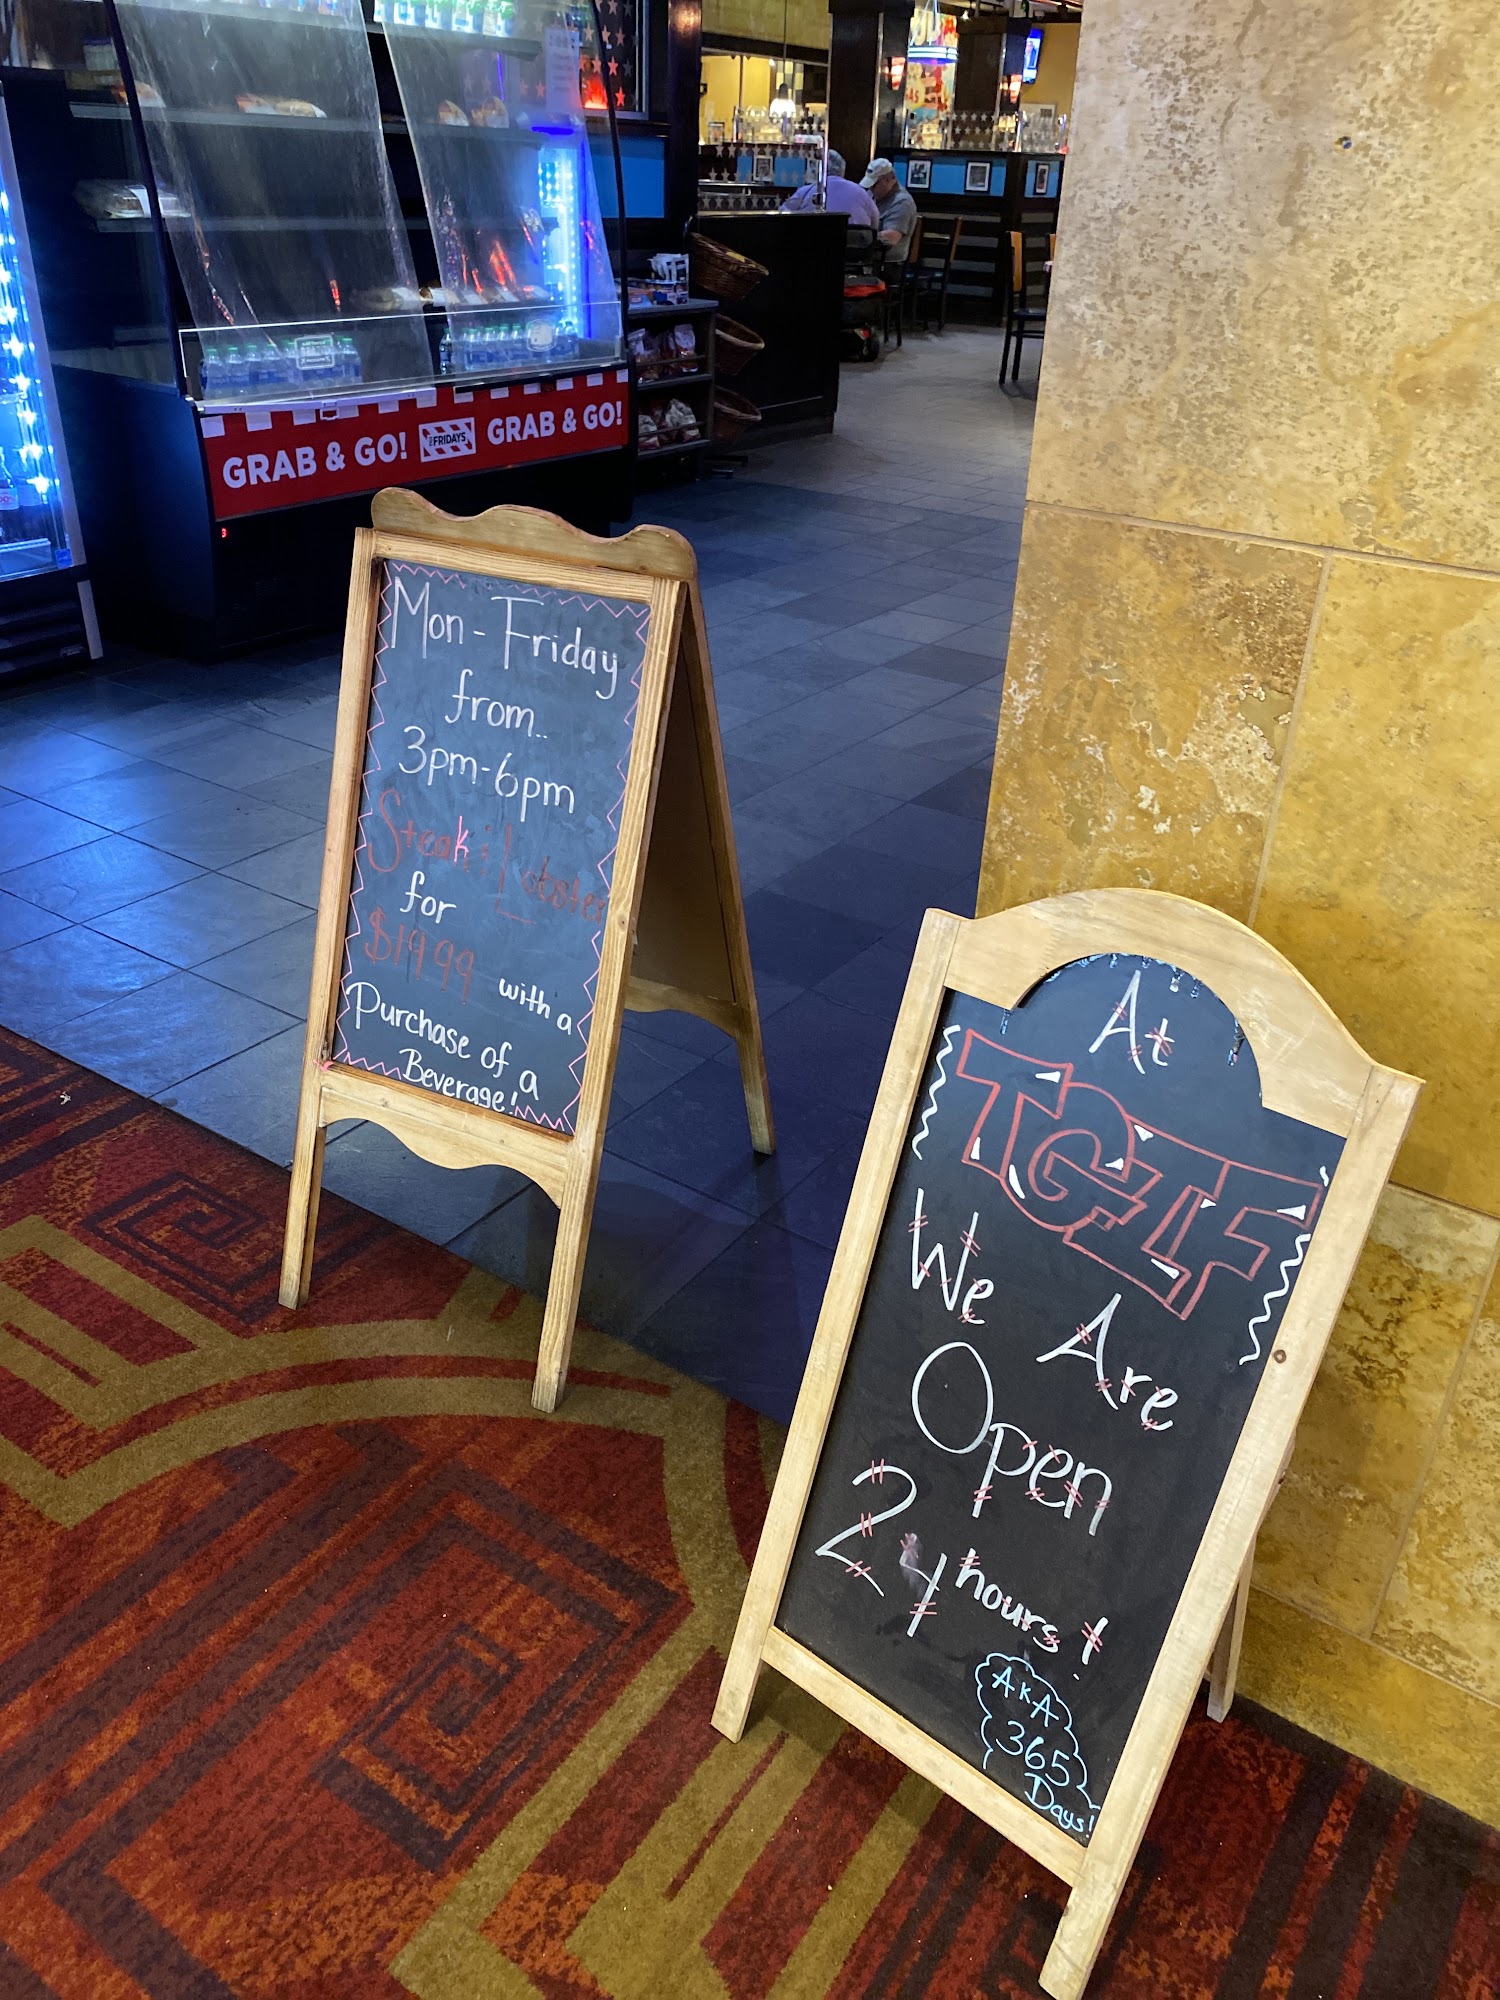 GRAB & GO! FRIDAYS GRAB & GO!
Mon - Friday
from..
3pm-6pm
Steak & Lobster
for
$19.99 with a
Purchase of a
Beverage!
At
TGIF
We Are
Open
24 hours!
AKA
365
Days!